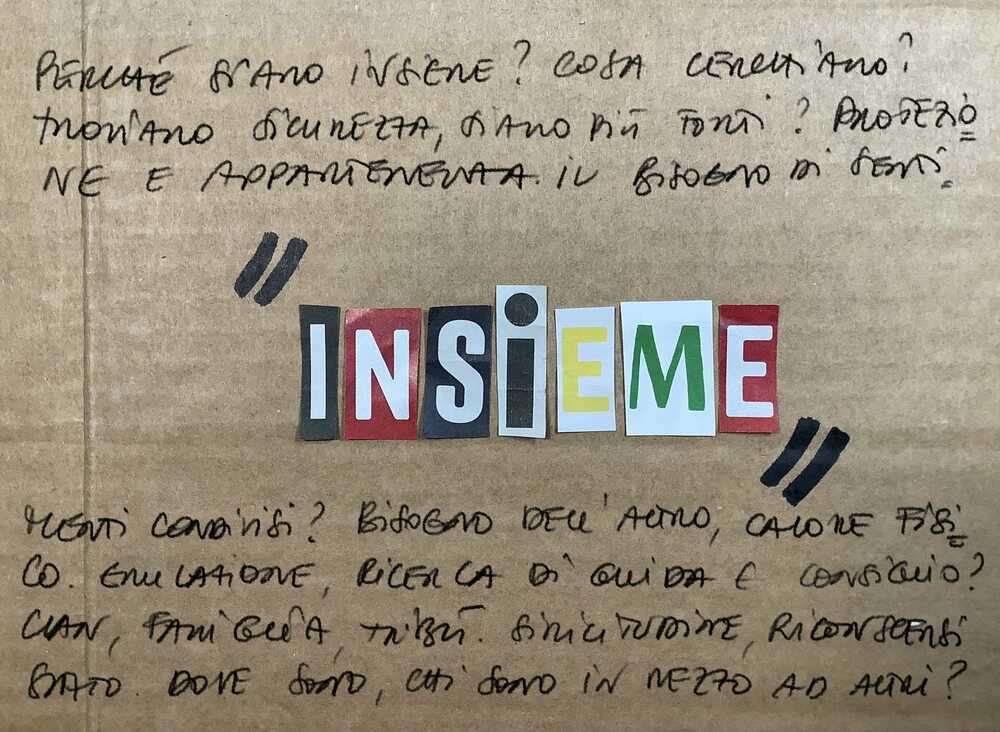 PERCHÉ SIAMO INSIEME? COSA CERCHIAMO?
TROVIAMO SICUREZZA, SIAMO PIÙ FORTI? PROTEZIO
NE E APPARTENENZA. IL BISOGNO DI SENTI
"INSiEME"
MENTI CONDIVISI? BISOGNO DELL'ALTRO, CALORE FISI
CO. EMULAZIONE, RICERCA DI GUIDA E CONSIGLIO?
CLAN, FAMIGLIA, TRIBÙ. SIMILITUDINE, RICONOSCERSI
STATO. DOVE SONO, CHI SONO IN MEZZO AD ALTRI?